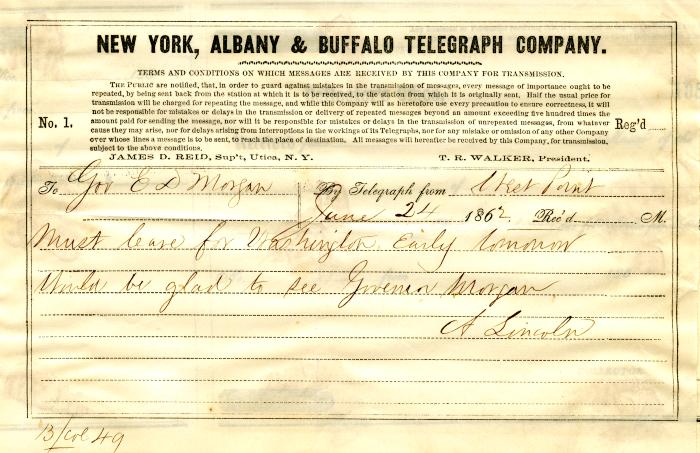 NEW YORK, ALBANY & BUFFALO TELEGRAPH COMPANY.
TERMS AND CONDITIONS ON WHICH MESSAGES ARE RECEIVED BY THIS COMPANY FOR TRANSMISSION.
THE PUBLIC are notified, that, in order to guard against mistakes in the transmission of messages, every message of importance ought to be
repeated, by being sent back from the station at which it is to be received, to the station from which it is originally sent. Half the usual price for
transmission will be charged for repeating the message, and while this Company will as heretofore use every precaution to ensure correctness, it will
not be responsible for mistakes or delays in the transmission or delivery of repeated messages beyond an amount exceeding five hundred times the
amount paid for sending the message, nor will it be responsible for mistakes or delays in the transmission of unrepeated messages, from whatever
cause they may arise, nor for delays arising from interruptions in the workings of its Telegraphs, nor for any mistake or omission of any other Company
over whose lines a message is to be sent, to reach the place of destination. All messages will hereafter be received by this Company, for transmission,
subject to the above conditions.
No. 1. Reg'd
JAMES D. REID, Sup't, Utica, N. Y. T. R. WALKER, President.
To Gov E D Morgan By Telegraph from West Point
June 24 1862. Rec'd M.
Must leave for Washington Early tomorrow
Would be glad to see Governor Morgan
A Lincoln
13/col 49